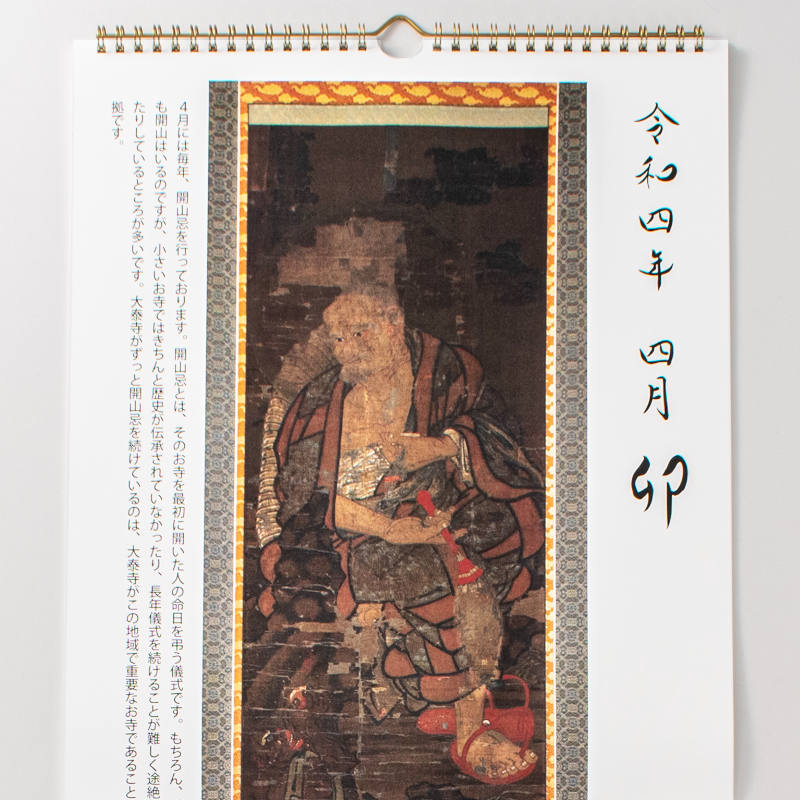 令和四年 四月 卯
4月には毎年、開山忌を行っております。開山忌とは、そのお寺を最初に開いた人の命日を弔う儀式です。もちろん、
も開山はいるのですが、小さいお寺ではきちんと歴史が伝承されていなかったり、長年儀式を続けることが難しく途絶
たりしているところが多いです。大泰寺がずっと開山忌を続けているのは、大泰寺がこの地域で重要なお寺であること
拠です。